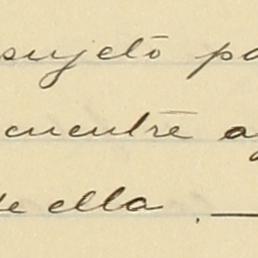 sujeto pa
cuentre a
de ella. —